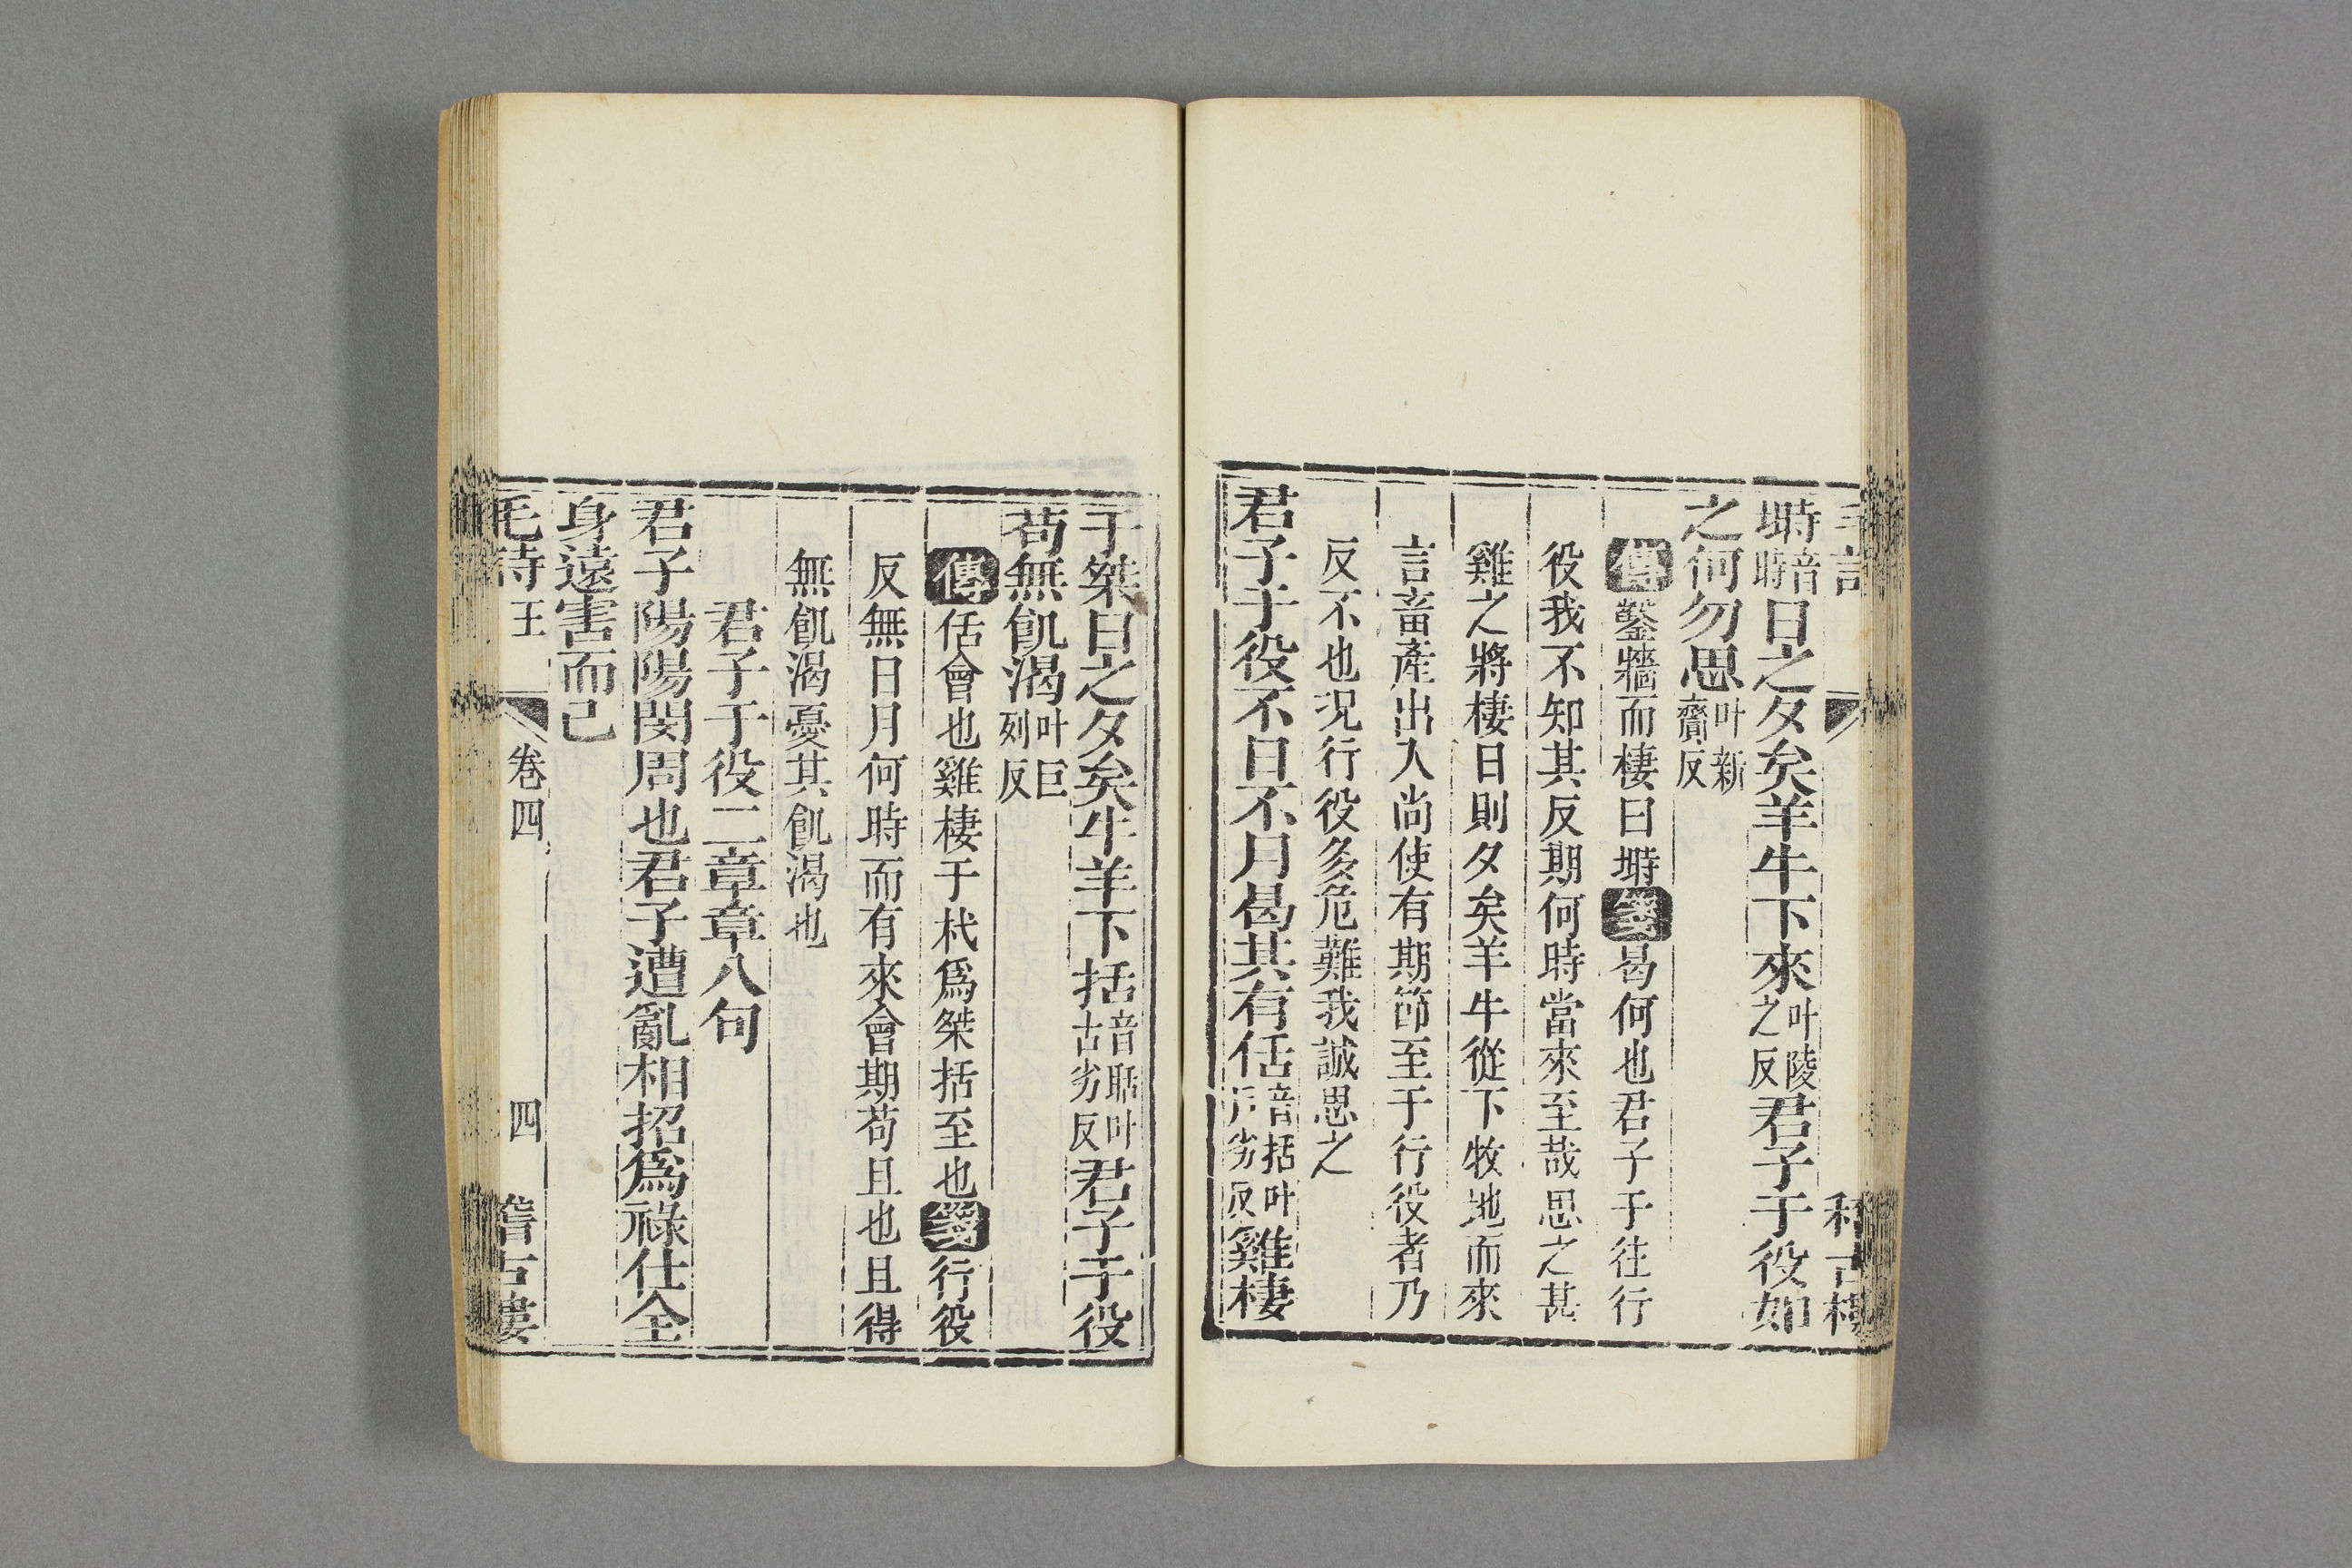 塒音時日之夕矣羊牛下來叶陵之反君子于役如
之何勿思叶新齎反
傳鑿牆而棲曰塒箋曷何也君子于往行
役我不知其反期何時當來至哉思之甚
雞之將棲日則夕矣羊牛從下牧地而來
言畜產出入尚使有期節至于行役者乃
反不也況行役多危難我誠思之
君子于役不日不月曷其有佸音括叶戶劣反雞棲
于桀日之夕矣牛羊下括音聒叶古劣反君子于役
苟無飢渴叶巨列反
傳佸會也雞棲于杙爲桀括至也箋行役
反無日月何時而有來會期苟且也且得
無飢渴憂其飢渴也
君子于役二章章八句
君子陽陽閔周也君子遭亂相招爲祿仕全
身遠害而已
毛詩 王 卷四 四 稽古樓